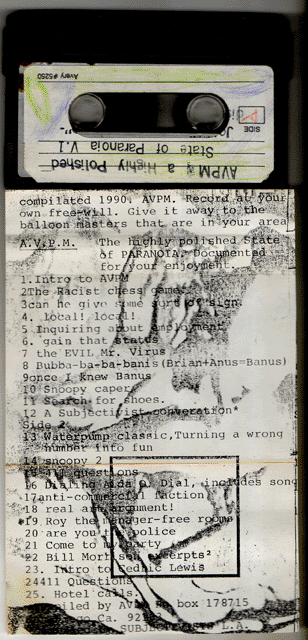 Avery #5250
SIDE
AVPM & a Highly Polished
State of Paranoia V.I
compiled 1990. AVPM. Record at your
own free-will. Give it away to the
balloon masters that are in your area
A.V.P.M. The highly polished State
of PARANOIA. Documented
for your enjoyment.
1.Intro to AVPM
2The Racist chess game
3can he give some sort of sign
4. local! local!
5 Inquiring about employment
6. gain that status
7 the EVIL Mr. Virus
8 Bubba-ba-ba-banis (Brian+Anus=Banus)
9once I knew Banus
10 Snoopy caper
11 Search for shoes.
12 A Subjectivist converation*
Side 2
13 Waterpump classic,Turning a wrong
number into fun
14 snoopy 2
questions
16 Dialing Aida O. Dial, includes song
17anti-commercial faction
18 real argument!
19 Roy the manager-free rooms
20 are you police
21 Come to my party
22 Bill Morrisen exerpts²
23. Intro to Cedric Lewis
24411 Questions
25. Hotel calls.
by AVPM Po box 178715
Ca.
SUBJECTIVISTS L.A.